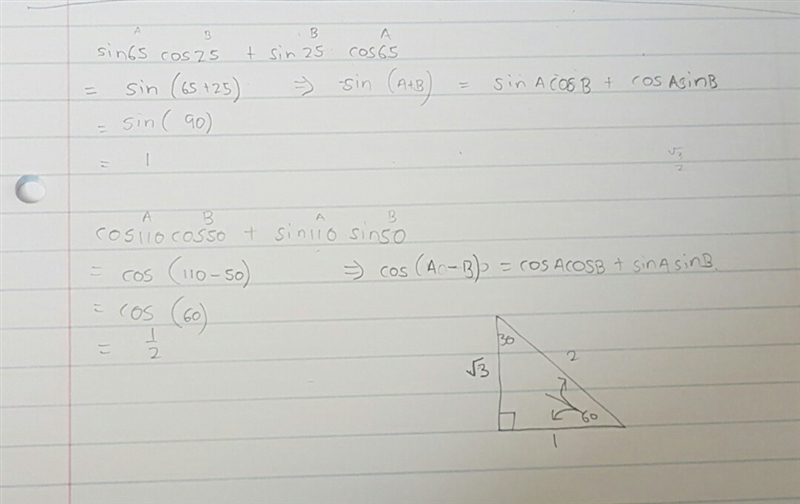 A B B A
sin65 cos25 + sin25 cos65
= sin (65+25) ⇒ sin (A+B) = sinAcosB + cosAsinB
= sin( 90)
= 1
√3/2
A B A B
cos110cos50 + sin110 sin50
= cos (110-50) ⇒ cos(A-B) = cosAcosB + sinAsinB
= cos (60)
= 1/2
30
2
√3
60
1